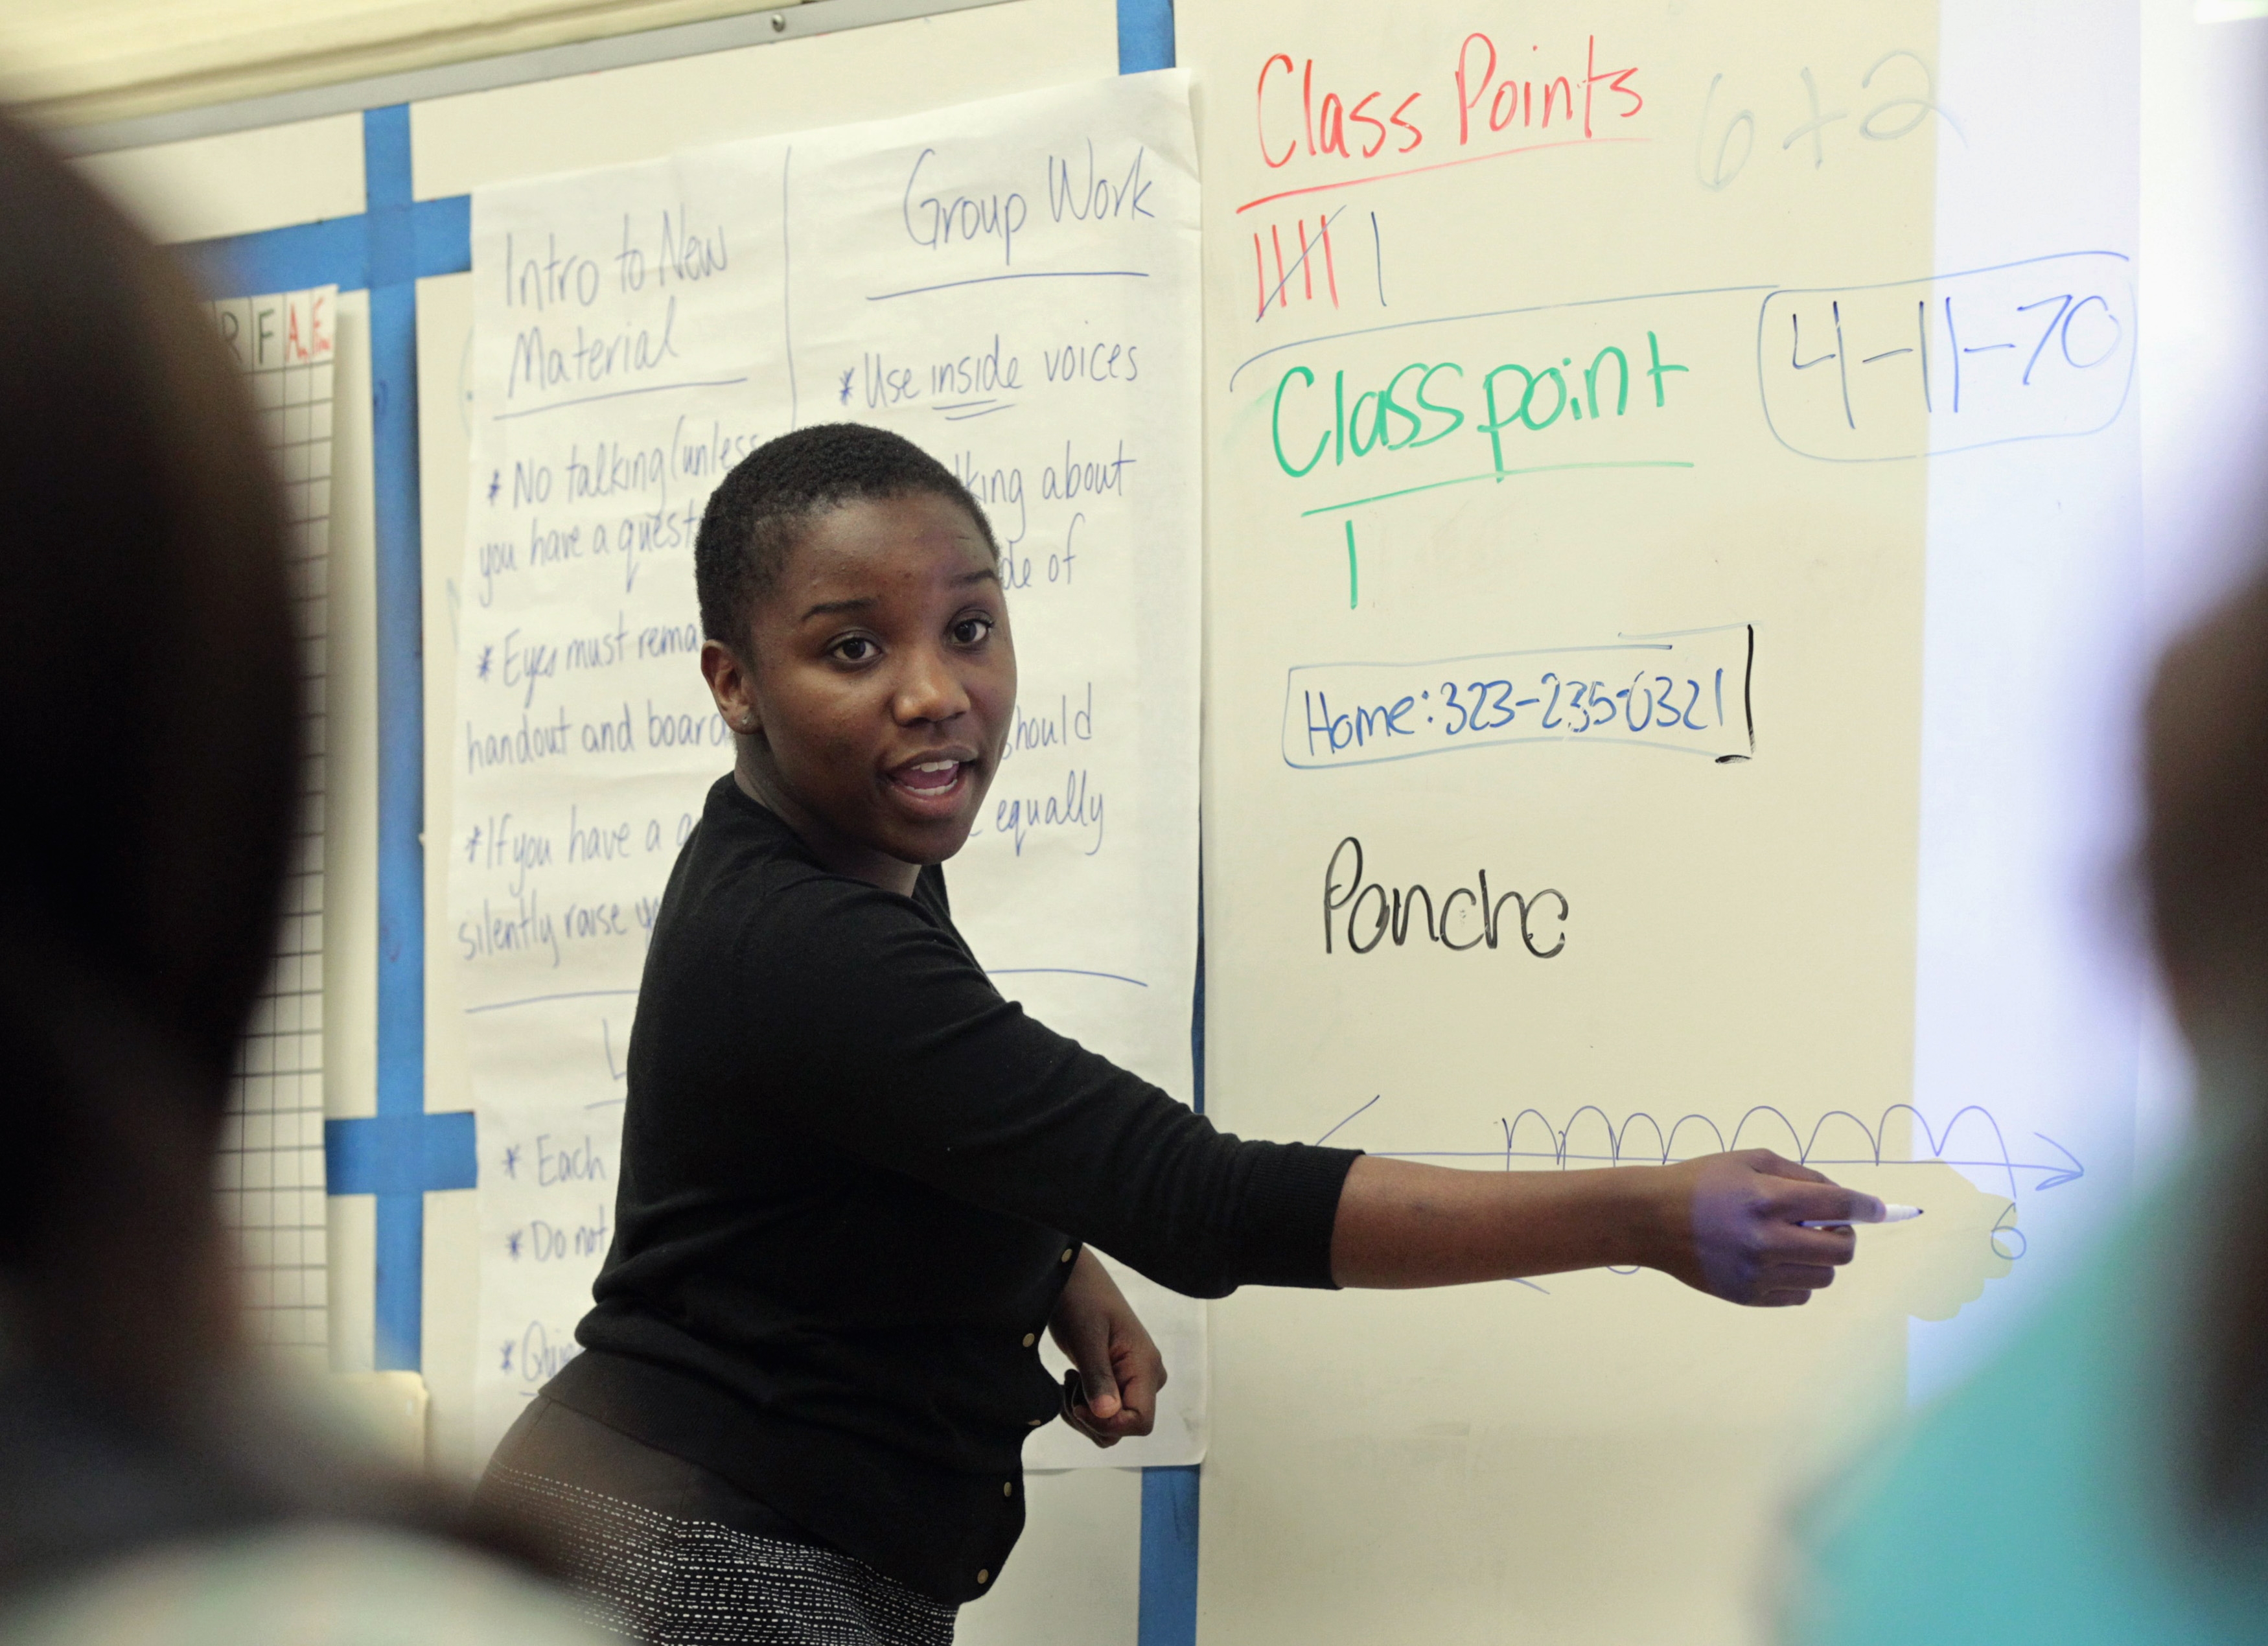 R F A
Intro to New
Material
* No talking (unless
you have a quest
* Eyes must rema
handout and board
* If you have a q
silently raise
L
* Each
* Do not
Group Work
* Use inside voices
lking about
de of
hould
equally
Class Points
6+2
Class point
4-11-70
Home: 323-235-0321
Poncho
6